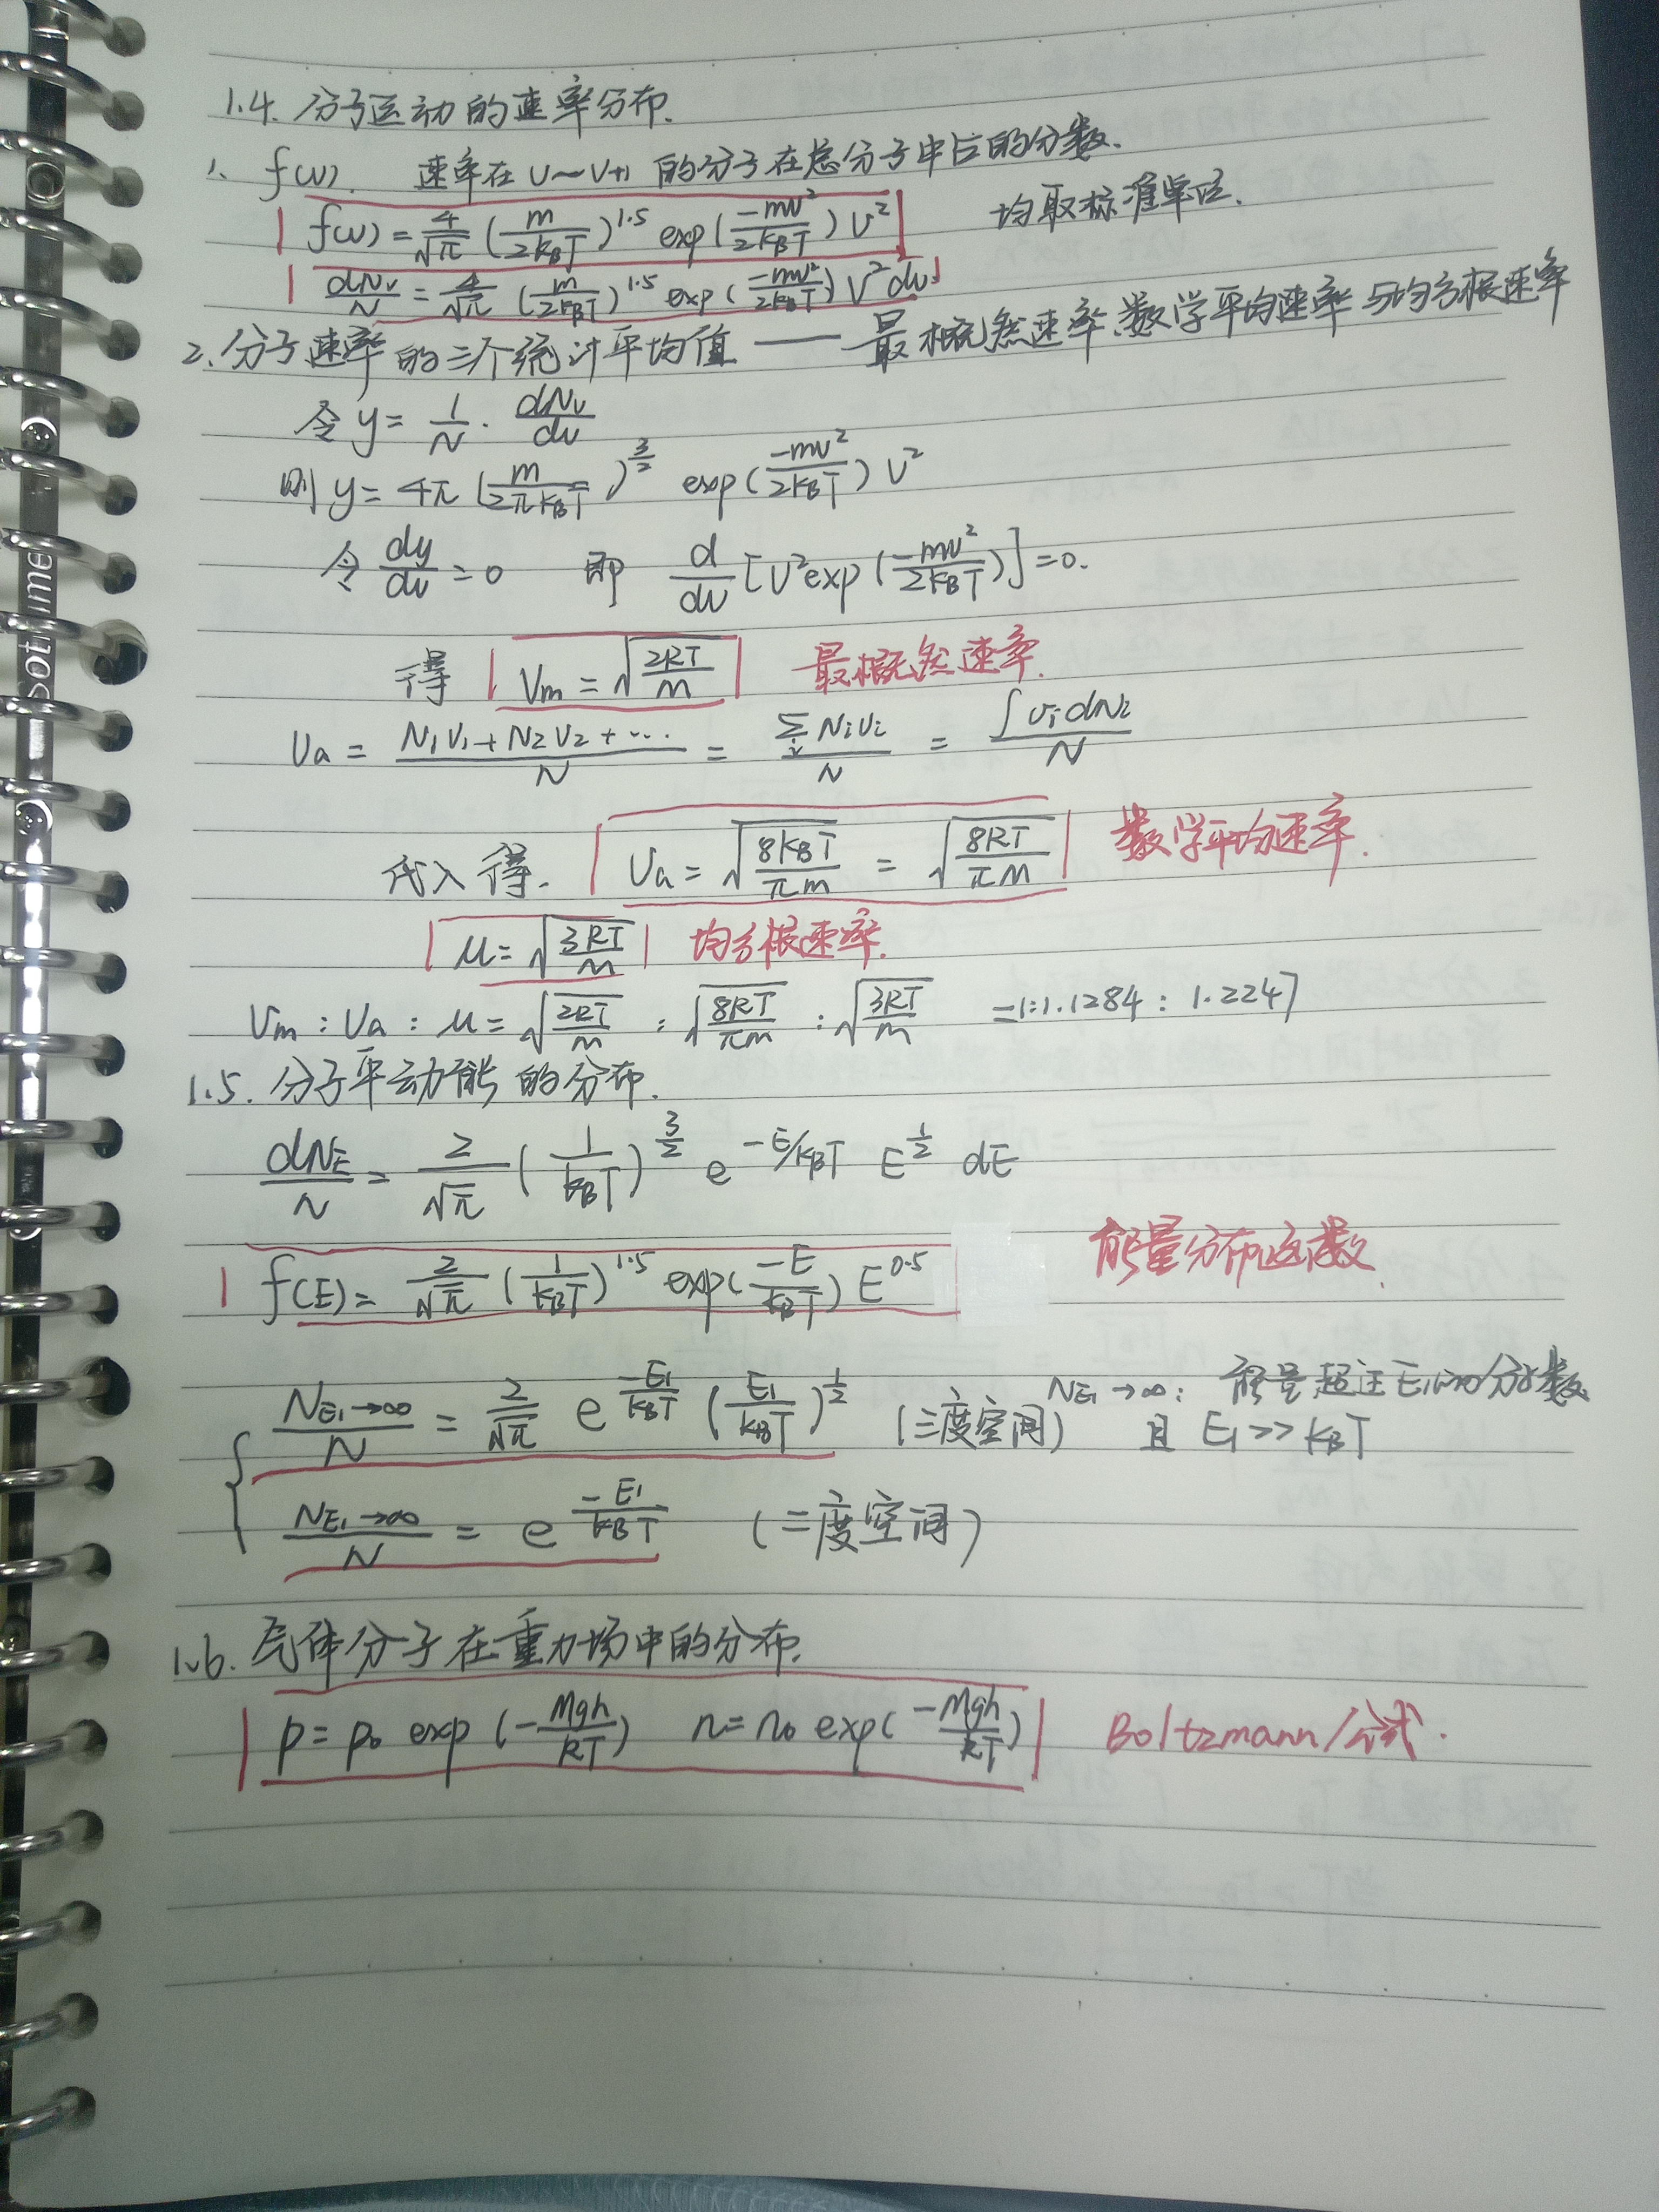 1.4. 分子运动的速率分布.
1. f(v). 速率在 v~v+1 的分子在总分子中占的分数.
f(v) = 4/√π (m/2k_BT)^1.5 exp(-mv²/2k_BT) v² 均取标准单位.
dN_v/N = 4/√π (m/2k_BT)^1.5 exp(-mv²/2k_BT) v² dv
2. 分子速率的三个统计平均值 —— 最概然速率、数学平均速率与均方根速率
令 y = 1/N · dN_v/dv
则 y = 4π (m/2πk_BT)^3/2 exp(-mv²/2k_BT) v²
令 dy/dv = 0 即 d/dv [v² exp(-mv²/2k_BT)] = 0.
得 V_m = √(2RT/M) 最概然速率.
V_a = (N₁V₁ + N₂V₂ + ···)/N = Σ_i N_iV_i/N = ∫v_i dN_i/N
代入得. V_a = √(8k_BT/πm) = √(8RT/πM) 数学平均速率.
μ = √(3RT/M) 均方根速率.
V_m : V_a : μ = √(2RT/M) : √(8RT/πM) : √(3RT/M) = 1:1.1284 : 1.2247
1.5. 分子平动能的分布.
dN_E/N = 2/√π (1/k_BT)^3/2 e^(-E/k_BT) E^1/2 dE
f(E) = 2/√π (1/k_BT)^1.5 exp(-E/k_BT) E^0.5 能量分布函数.
N_E₁→∞/N = 2/√π e^(-E₁/k_BT) (E₁/k_BT)^1/2 (三度空间) N_E₁→∞: 能量超过E₁的分子数
且 E₁ >> k_BT
N_E₁→∞/N = e^(-E₁/k_BT) (二度空间)
1.6. 气体分子在重力场中的分布.
p = p₀ exp(-Mgh/RT) n = n₀ exp(-Mgh/RT) Boltzmann公式.
sotime